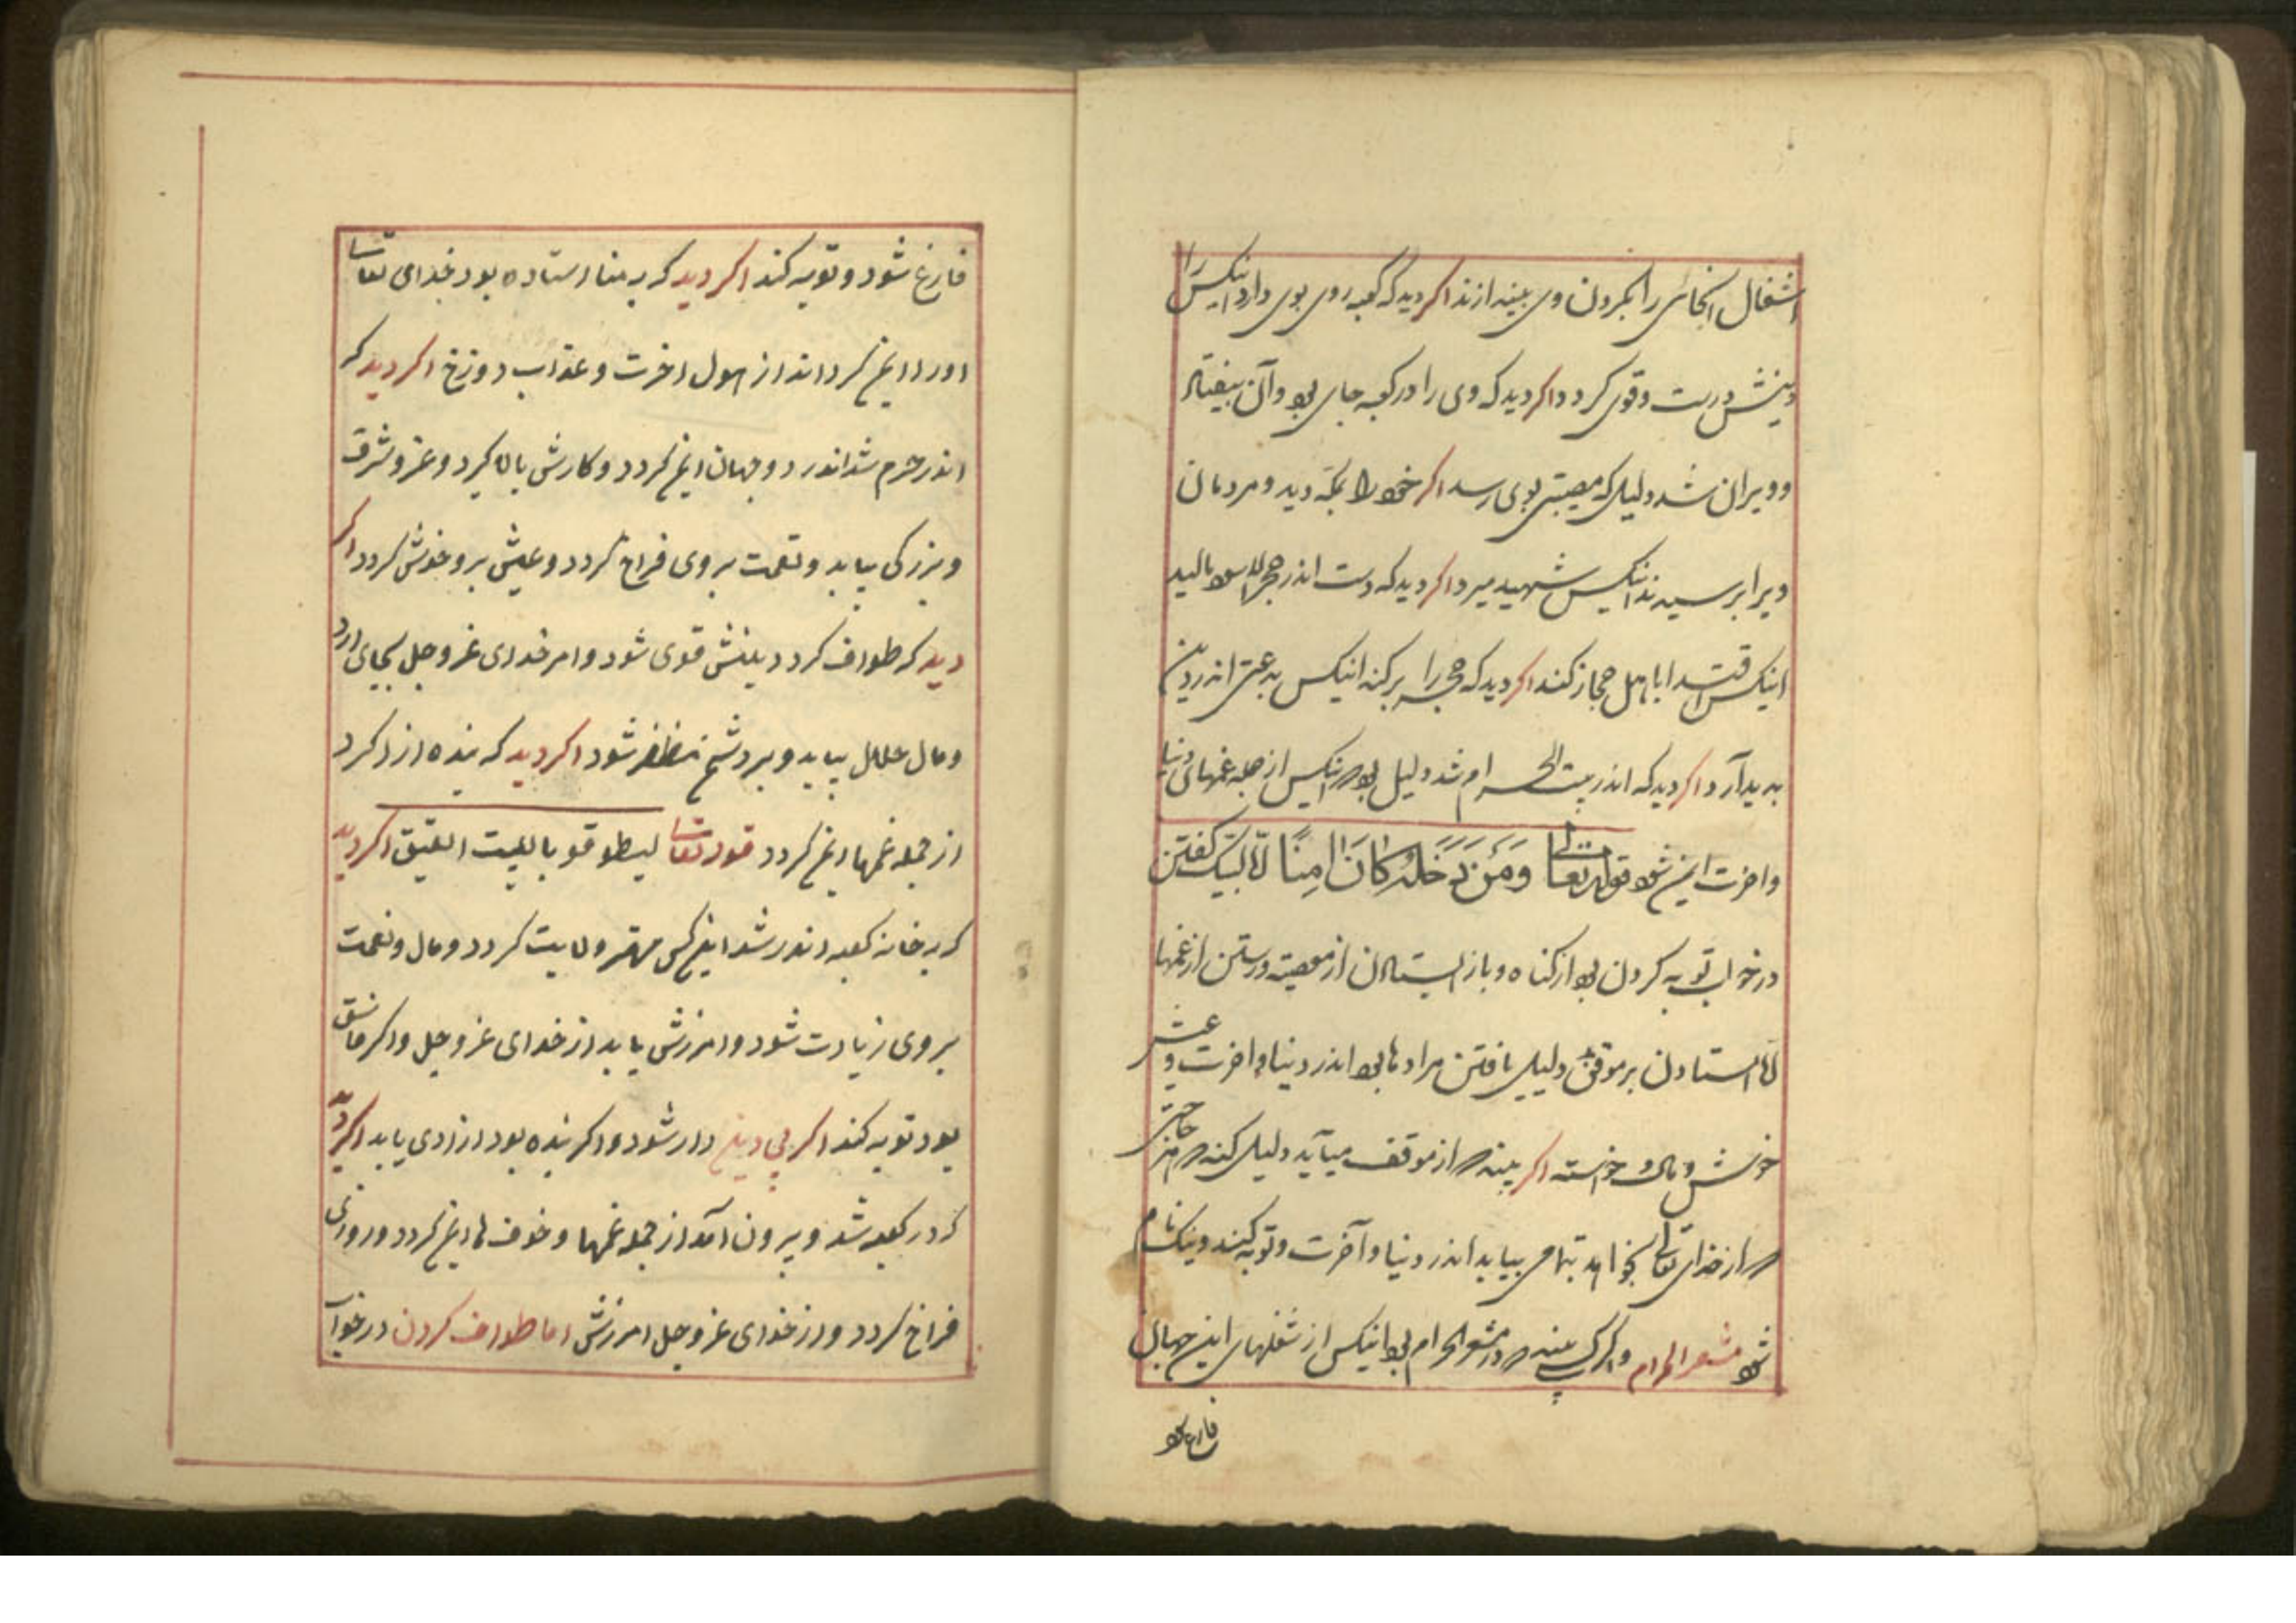 اشغال انجهانی را بگردن وی بیندازند اگر دید که کعبه روی بوی دارد انیکس را
دینش درست و قوی کردد اگر دید که وی را در کعبه جای بود و آن بیفتاد
و ویران شد دلیل که مصیبتی بوی رسد اگر خود را بمکه دید و مردمان
ویرا پرسیدند انیکس شهید میرد اگر دید که دست اندر حجر الاسود مالید
انیکس اقتدا باهل حجاز کند اگر دید که حجر را برکند انیکس بدعتی اندر دین
پدید آرد اگر دید که اندر بیت الحرام شد دلیل بود که انیکس از جمله غمهای دنیا
و اخرت ایمن شود قوله تعالی وَمَن دَخَلَهُ كَانَ امِنًا امّا لبیک کفتن
در خواب توبه کردن بود از کناه و باز ایستادن از معصیت و رستن از غمها
امّا استادن بر موقف دلیل یافتن مرادها بود اندر دنیا و اخرت و عیش
خوش و مال و خواسته اگر بیند که از موقف میآید دلیل کند که هر حاجتی
که از خدای تعالی بخواهد بتمامی بیابد اندر دنیا و آخرت و توبه کند و نیک نام
شود مشعر الحرام و اگر کسی بیند که در مشعر الحرام بود انیکس از شغلهای این جهان
فارغ شود
فارغ شود و توبه کند اکر دید که به منا استاده بود خدای تعالی
اورا ایمن کرداند از هول اخرت و عذاب دوزخ اکر دید که
اندر حرم شد اندر دو جهان ایمن کردد و کارش بالا کیرد و عز و شرف
و بزرکی بیابد و نعمت بروی فراخ کردد و عیش برو خوش کردد اکر
دید که طواف کرد دینش قوی شود و امر خدای عز و جل بجای ارد
و مال حلال بیابد و بر دشمن مظفر شود اکر دید که بنده ازاد کرد
از جمله غمها ایمن کردد قوله تعالی لیطوفو بالبیت العتیق اکر دید
که به خانه کعبه اندر شد اینکس مهتر ولایت کردد و مال و نعمت
بروی زیادت شود و امرزش یابد از خدای عز و جل و اکر فاسق
بود توبه کند اکر بی دین دار شود و اکر بنده بود ازادی یابد اکر دید
که در کعبه شد و بیرون آمد از جمله غمها و خوف ها ایمن کردد و روزی
فراخ کردد و از خدای عز و جل امرزش اما طواف کردن در خواب